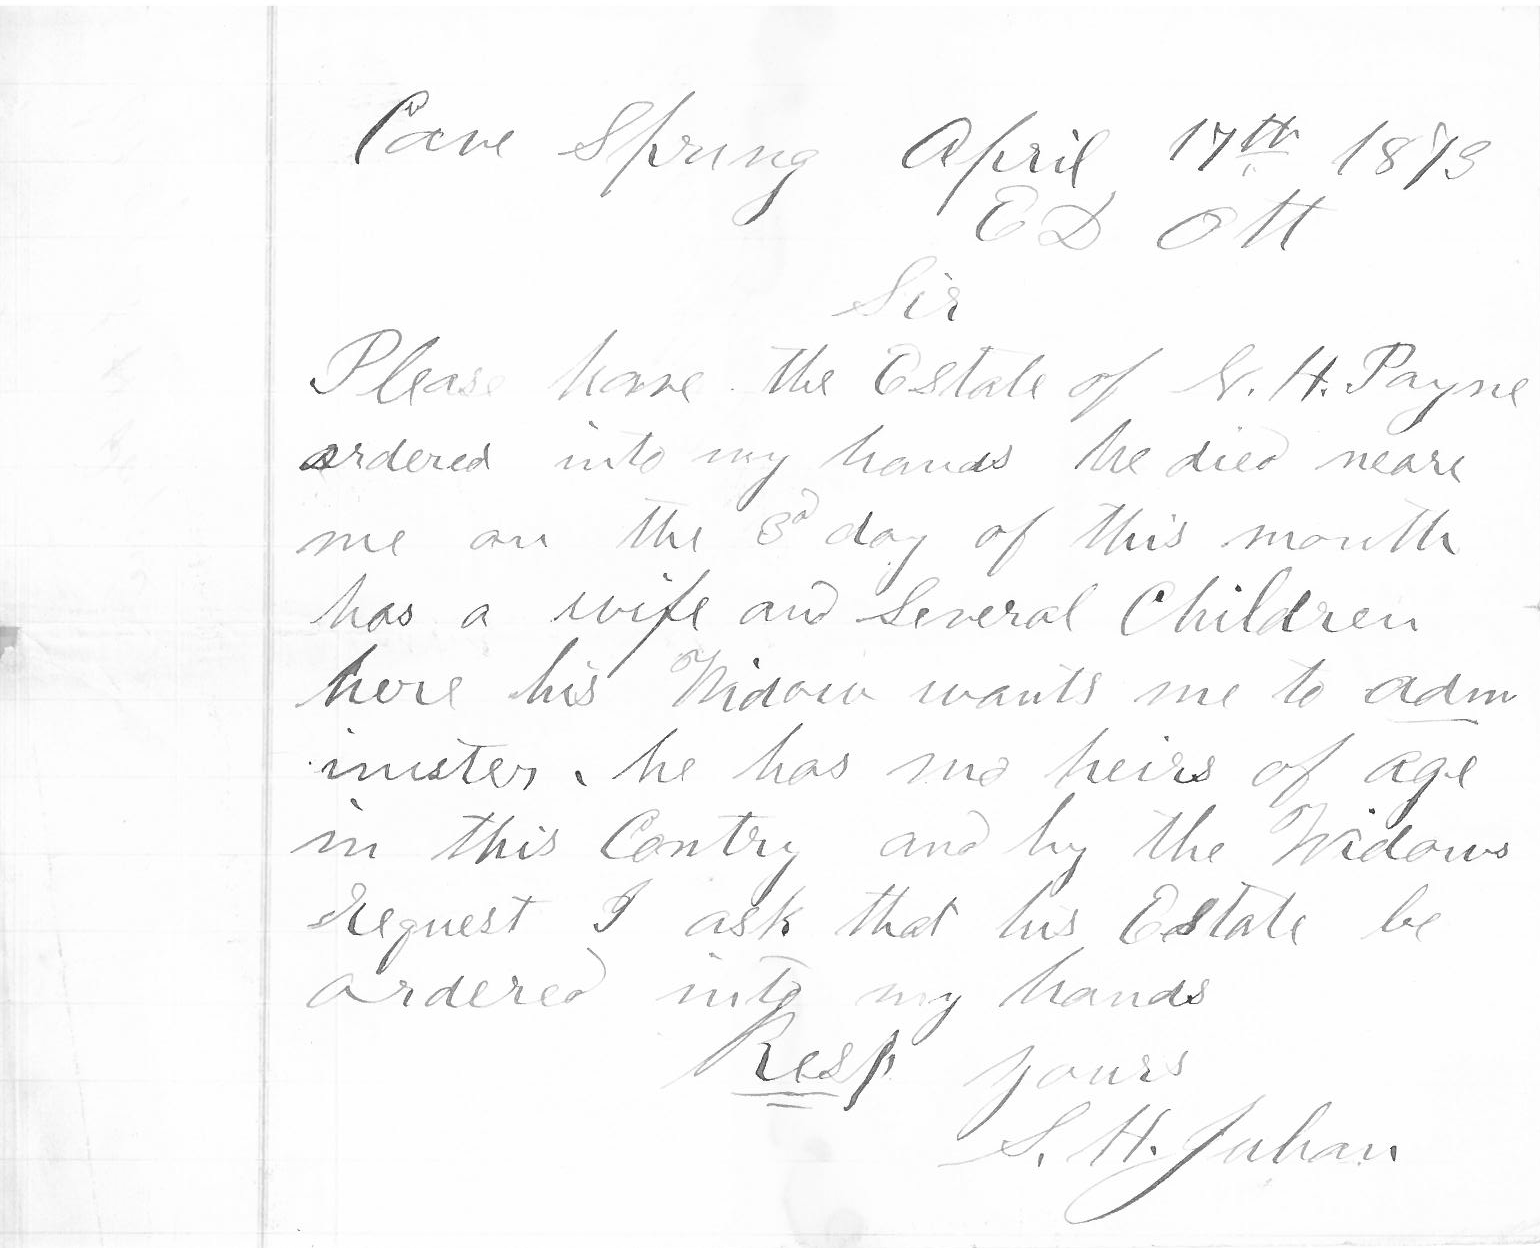 Cave Spring April 17th 1873
E D Ott
Sir
Please have the Estate of N. H. Payne
ordered into my hands he died neare
me on the 3d day of this month
has a wife and Several Children
here his Widow wants me to adm
inister. he has no heirs of age
in this Contry and by the Widows
request I ask that his Estate be
ordered into my hands
Resp yours
S. H. Julian